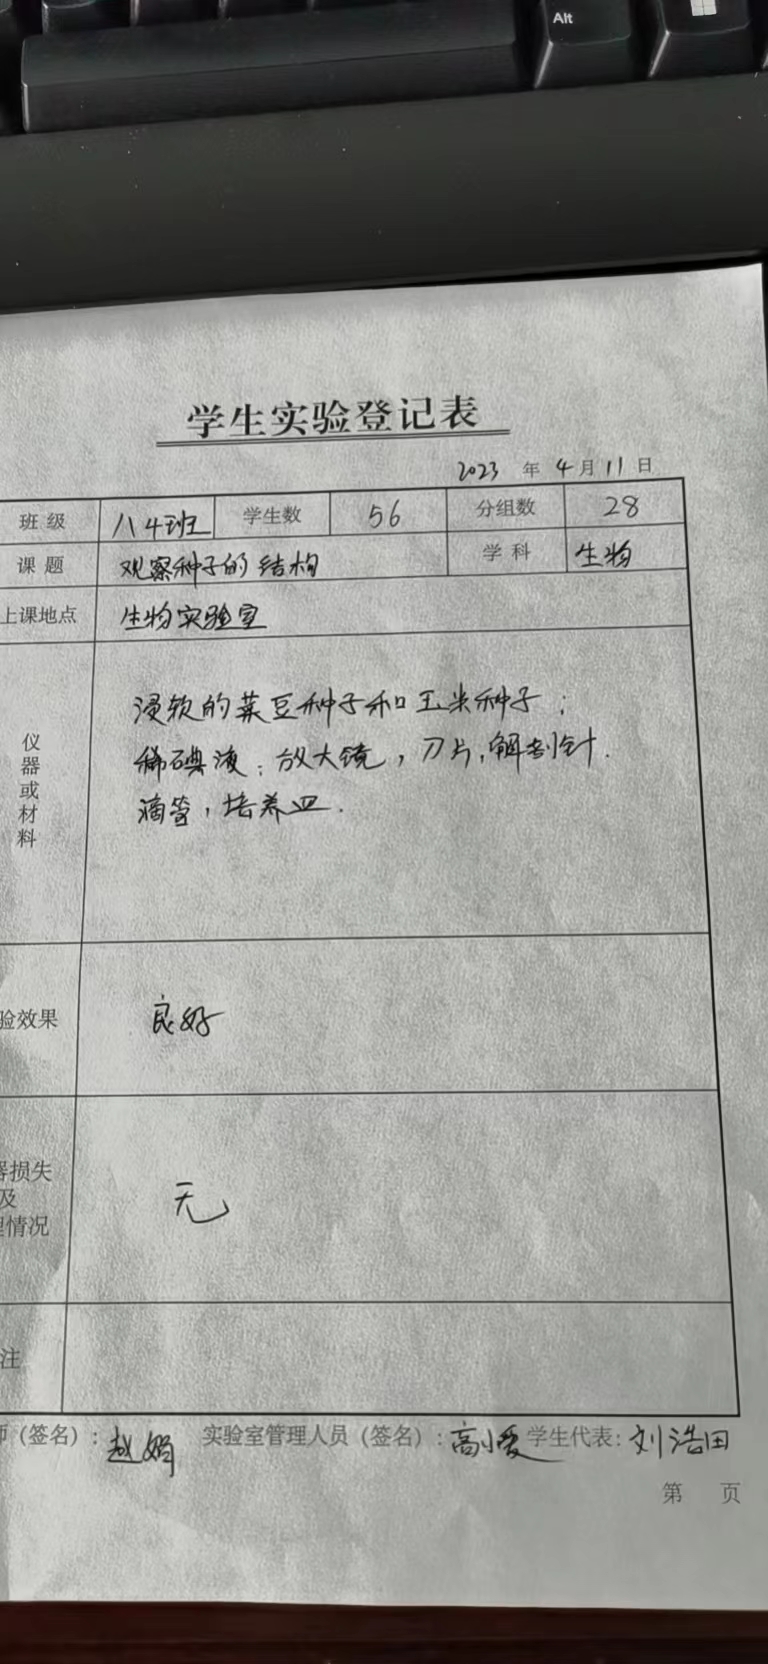 Alt
学生实验登记表
2023 年 4 月 11 日
班级 八4班 学生数 56 分组数 28
课题 观察种子的结构 学科 生物
上课地点 生物实验室
仪器或材料
浸软的菜豆种子和玉米种子；
稀碘液；放大镜，刀片，解剖针.
滴管，培养皿.
验效果 良好
器损失
及
理情况
无
注
师（签名）：赵娟 实验室管理人员（签名）：高小爱 学生代表：刘浩田
第 页